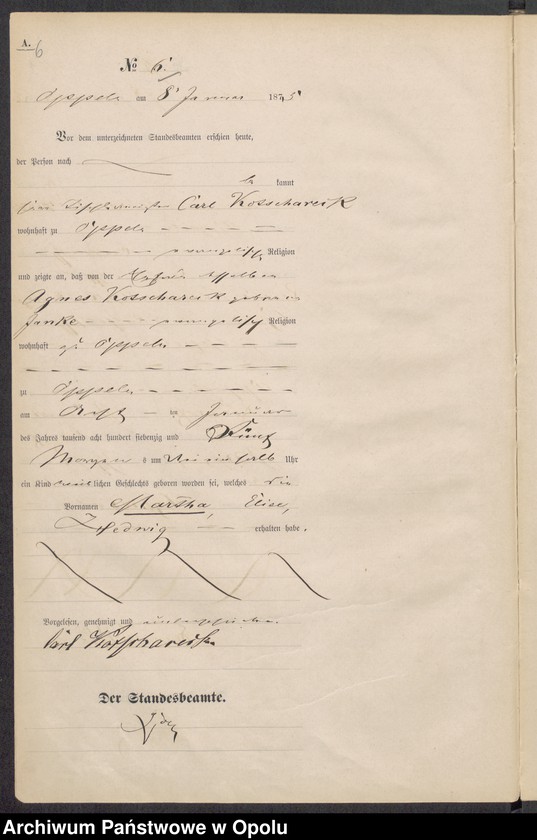 A. 6
No 6.
Oppeln am 8 Januar 1875
Vor dem unterzeichneten Standesbeamten erschien heute,
der Person nach
be kannt
Carl Kotschareck
wohnhaft zu Oppeln
evangelisch Religion
und zeigte an, daß von der Ehefrau desselben
Agnes Kotschareck geborne
Janke evangelisch Religion
wohnhaft zu Oppeln
zu Oppeln
am im Januar
des Jahres tausend acht hundert siebenzig und Fünf
Morgens um Uhr
ein Kind weiblichen Geschlechts geboren worden sei, welches die
Vornamen Martha, Elise,
Hedwig erhalten habe.
Vorgelesen, genehmigt und unterschrieben.
Carl Kotschareck
Der Standesbeamte.
Archiwum Państwowe w Opolu